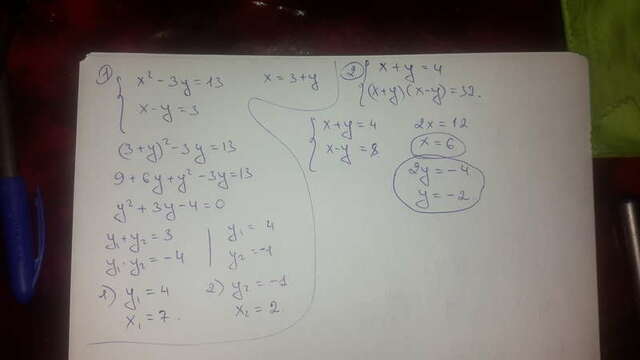 1) { x² - 3y = 13
x - y = 3
x = 3 + y
(3+y)² - 3y = 13
9 + 6y + y² - 3y = 13
y² + 3y - 4 = 0
y₁ + y₂ = 3
y₁ · y₂ = -4
y₁ = 4
y₂ = -1
1) y₁ = 4
x₁ = 7.
2) y₂ = -1
x₂ = 2.
2) { x + y = 4
(x+y)(x-y) = 32.
{ x + y = 4
x - y = 8
2x = 12
x = 6
2y = -4
y = -2